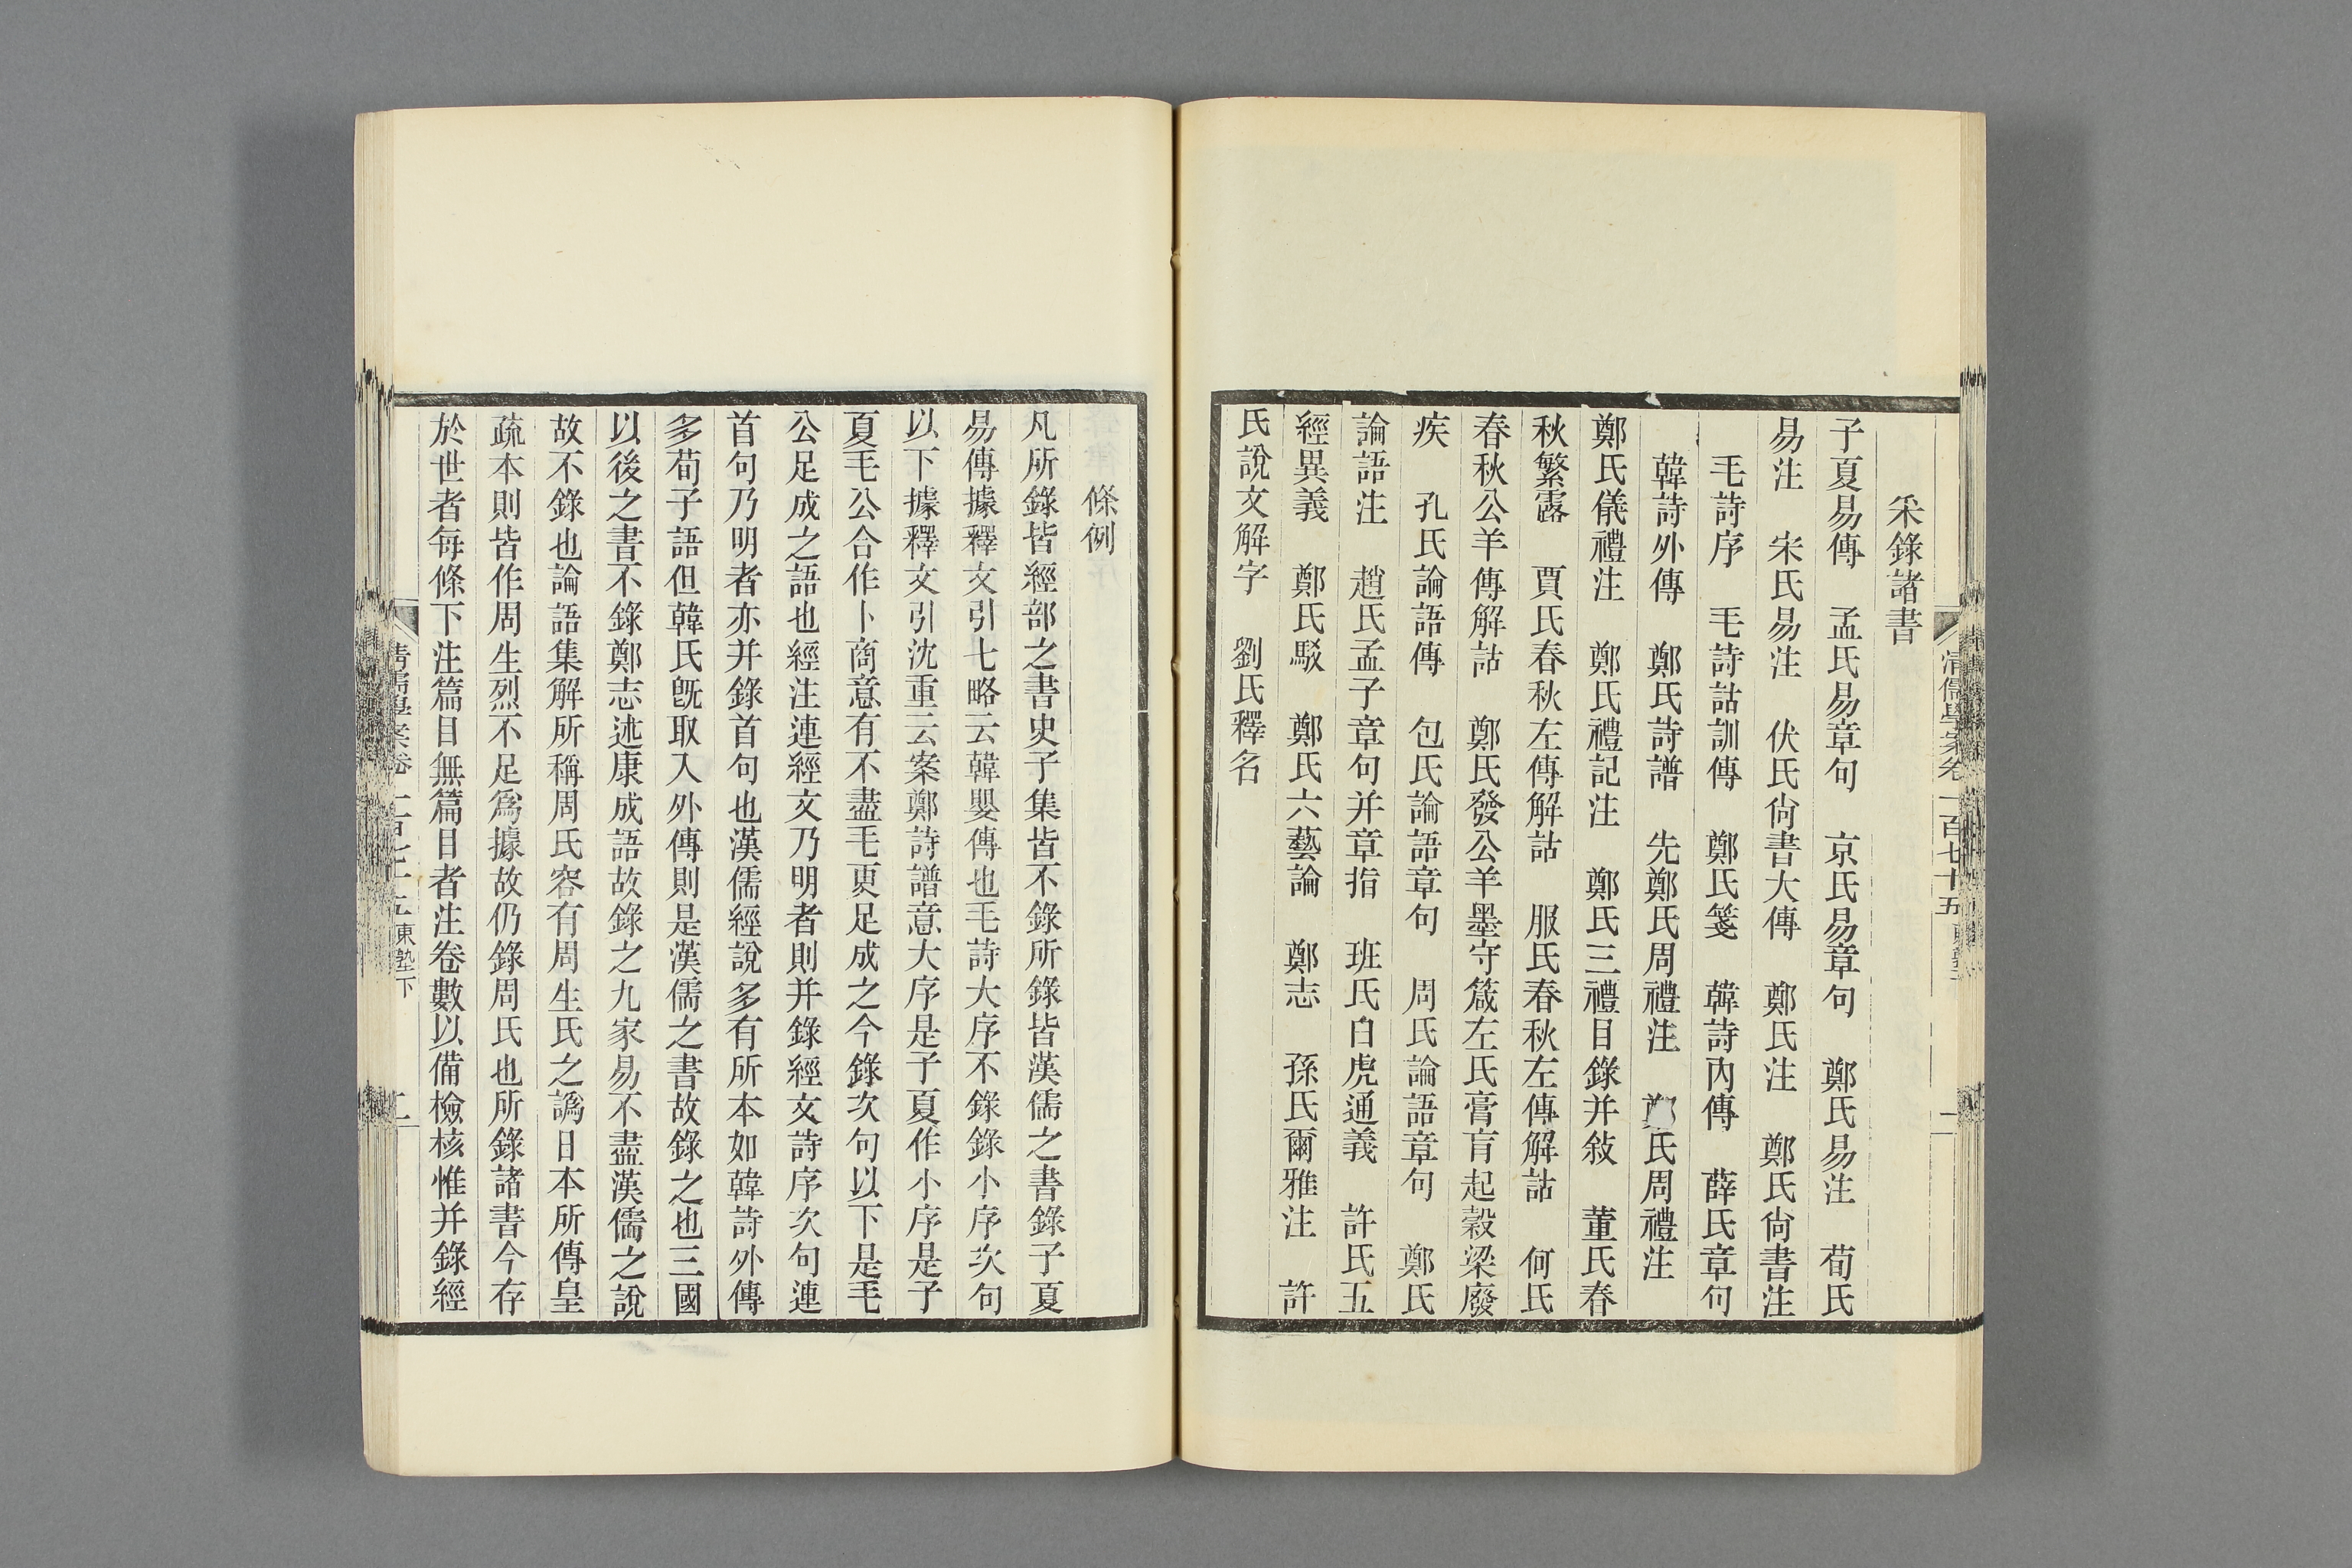 清儒學案卷一百七十五
采錄諸書
子夏易傳　孟氏易章句　京氏易章句　鄭氏易注　荀氏
易注　宋氏易注　伏氏尙書大傳　鄭氏注　鄭氏尙書注
毛詩序　毛詩詁訓傳　鄭氏箋　韓詩內傳　薛氏章句
韓詩外傳　鄭氏詩譜　先鄭氏周禮注　鄭氏周禮注
鄭氏儀禮注　鄭氏禮記注　鄭氏三禮目錄并敍　董氏春
秋繁露　賈氏春秋左傳解詁　服氏春秋左傳解詁　何氏
春秋公羊傳解詁　鄭氏發公羊墨守箴左氏膏肓起穀梁廢
疾　孔氏論語傳　包氏論語章句　周氏論語章句　鄭氏
論語注　趙氏孟子章句并章指　班氏白虎通義　許氏五
經異義　鄭氏駁　鄭氏六藝論　鄭志　孫氏爾雅注　許
氏說文解字　劉氏釋名
條例
凡所錄皆經部之書史子集皆不錄所錄皆漢儒之書錄子夏
易傳據釋文引七略云韓嬰傳也毛詩大序不錄錄小序次句
以下據釋文引沈重云案鄭詩譜意大序是子夏作小序是子
夏毛公合作卜商意有不盡毛更足成之今錄次句以下是毛
公足成之語也經注連經文乃明者則并錄經文詩序次句連
首句乃明者亦并錄首句也漢儒經說多有所本如韓詩外傳
多荀子語但韓氏旣取入外傳則是漢儒之書故錄之也三國
以後之書不錄鄭志述康成語故錄之九家易不盡漢儒之說
故不錄也論語集解所稱周氏容有周生氏之譌日本所傳皇
疏本則皆作周生烈不足爲據故仍錄周氏也所錄諸書今存
於世者每條下注篇目無篇目者注卷數以備檢核惟并錄經
清儒學案卷一百七十五東塾下　二